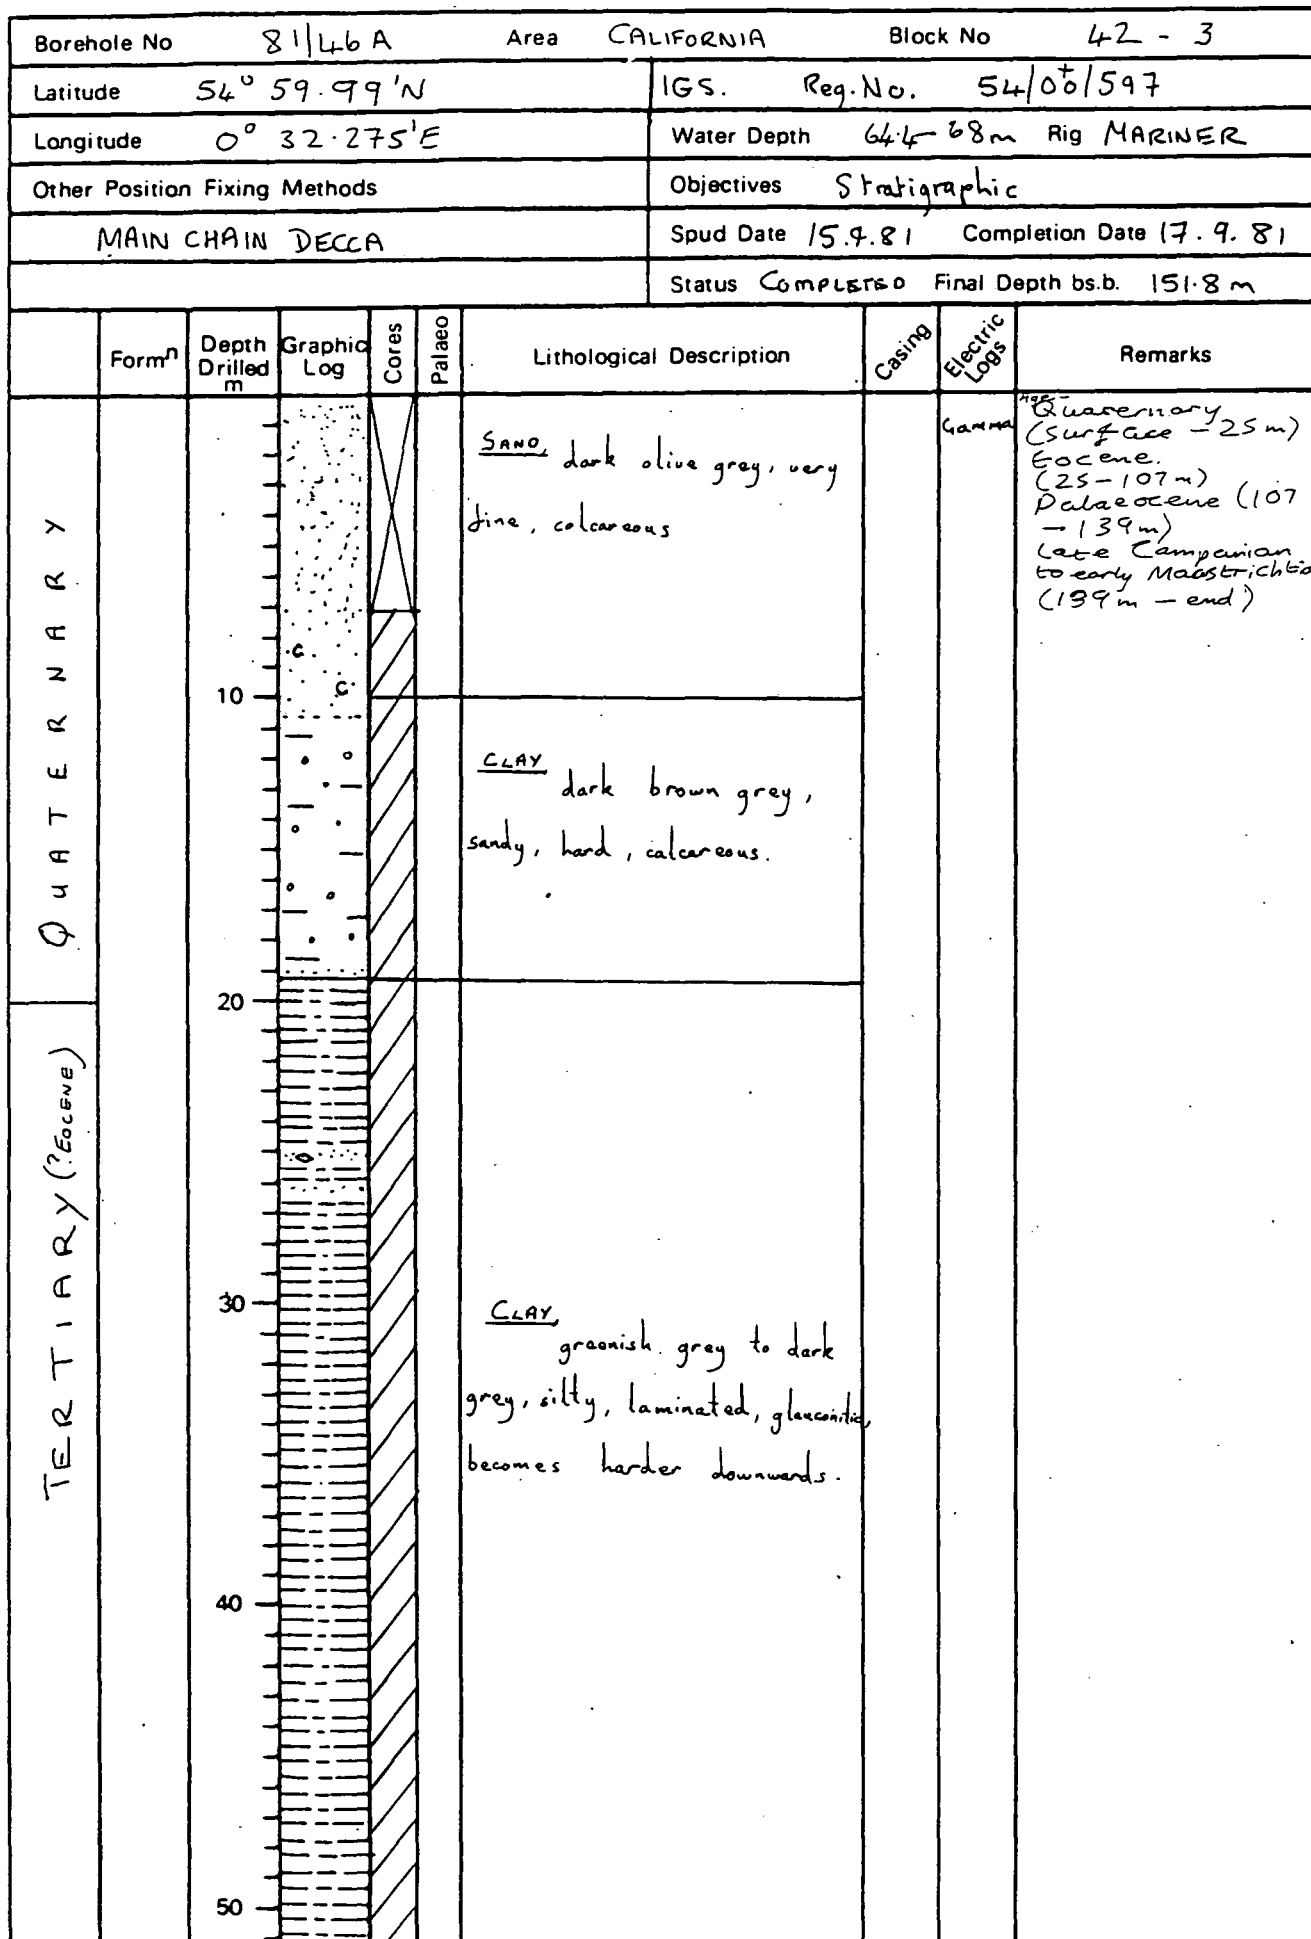 Borehole No 81/46A Area CALIFORNIA Block No 42 - 3
Latitude 54° 59.99'N IGS. Reg. No. 54/00+/597
Longitude 0° 32.275'E Water Depth 64.4-68m Rig MARINER
Other Position Fixing Methods Objectives Stratigraphic
MAIN CHAIN DECCA Spud Date 15.9.81 Completion Date 17.9.81
Status COMPLETED Final Depth bs.b. 151.8 m
Formn Depth Drilled m Graphic Log Cores Palaeo Lithological Description Casing Electric Logs Remarks
QUATERNARY
TERTIARY (?EOCENE)
10
20
30
40
50
C
C
SAND, dark olive grey, very
fine, calcareous
CLAY dark brown grey,
sandy, hard, calcareous.
CLAY,
greenish grey to dark
grey, silty, laminated, glauconitic,
becomes harder downwards.
Gamma
Age -
Quaternary
(surface - 25m)
Eocene.
(25-107m)
Palaeocene (107
- 139m)
Late Campanian
to early Maastrichtia
(139m - end)